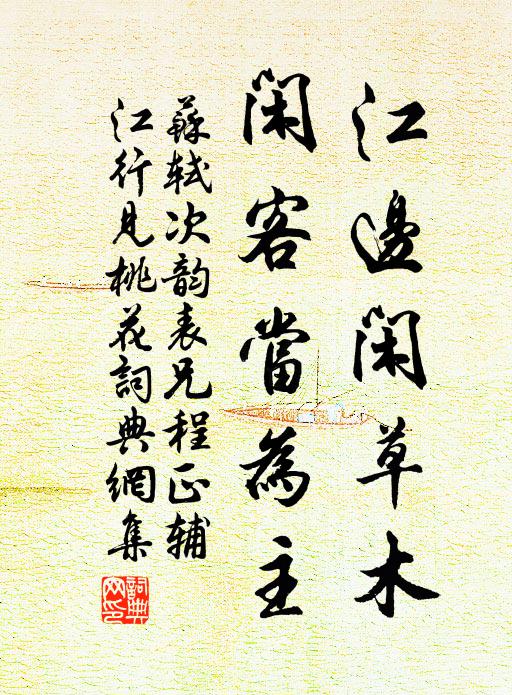 江邊閑草木
閑客當為主
蘇軾次韵表兄程正辅
江行見桃花詞典網集
詞典網印